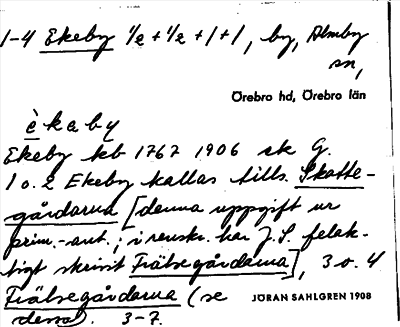 1-4 Ekeby 1/2 + 1/2 + 1 + 1, by, Almby
sn,
Örebro hd, Örebro län
èkaby
Ekeby kb 1767 1906 sk G.
1 o. 2 Ekeby kallas tills. Skatte-
gårdarna [denna uppgift ur
prim.-ant.; i renskr. har J.S. felak-
tigt skrivit Frälsegårdarna], 3 o. 4
Frälsegårdarna (se
dessa). 3-7.
JÖRAN SAHLGREN 1908